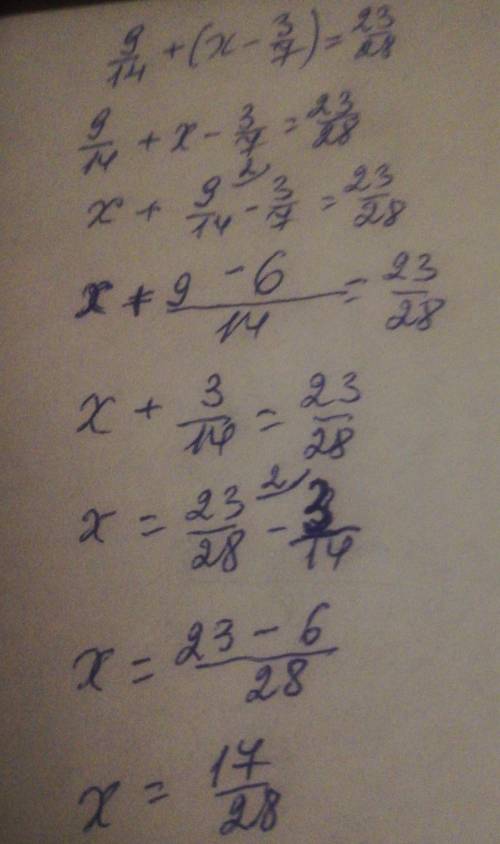 9/14 + (x - 3/7) = 23/28
9/14 + x - 3/7 = 23/28
x + 9/14 - 3/7 2) = 23/28
x + 9 - 6/14 = 23/28
x + 3/14 = 23/28
x = 23/28 - 3/14 2)
x = 23 - 6/28
x = 17/28